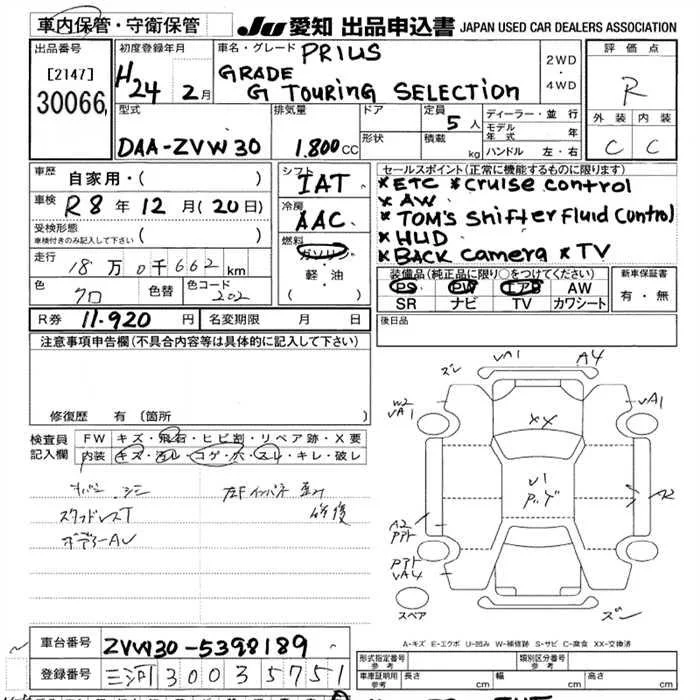 車内保管・守衛保管
JU 愛知 出品申込書 JAPAN USED CAR DEALERS ASSOCIATION
出品番号
[2147]
30066
初度登録年月
H24 2月
車名・グレード PRIUS
GRADE
G TOURING SELECTION
2WD
・
4WD
評価点
R
外装 内装
C C
型式
DAA-ZVW30
排気量
1.800CC
ドア
形状
定員
5人
積載
kg
ディーラー・並行
モデル年式 年
ハンドル 左・右
車歴
自家用・( )
車検 R8年12月(20日)
受検形態
車検付きのみ記入して下さい ( )
走行
18万0千662km
色
クロ
色替
色コード
202
シフト
IAT
冷房
AAC
燃料
ガソリン
・
軽・油
( )
セールスポイント(正常に機能するものに限ります)
*ETC *Cruise control
*AW
*TOM'S Shifter Fluid Control
*HUD
*BACK camera *TV
装備品(純正品に限り○をつけてください)
PS PW エアB AW
SR ナビ TV カワシート
新車保証書
有・無
R券 11.920円
名変期限 月 日
後日品
注意事項申告欄(不具合内容等は具体的に記入して下さい)
修復歴 有(箇所 )
検査員
記入欄
FW キズ・飛石・ヒビ割・リペア跡・X要
内装 キズ・汚レ・コゲ・穴・スレ・キレ・破レ
スタッドレスT
修復
ズレ VA1 A4
W2
VA1
VA1
XX
U1
A2
A2
VA4
スペア
A-キズ E-エクボ U-凹み W-補修跡 S-サビ C-腐食 XX-交換済
車台番号 ZVW30-5398189
登録番号 三河 300 35751
形式指定番号
参考
類別区分番号
参考
車庫証明用
参考
長さ cm
幅 cm
高さ cm